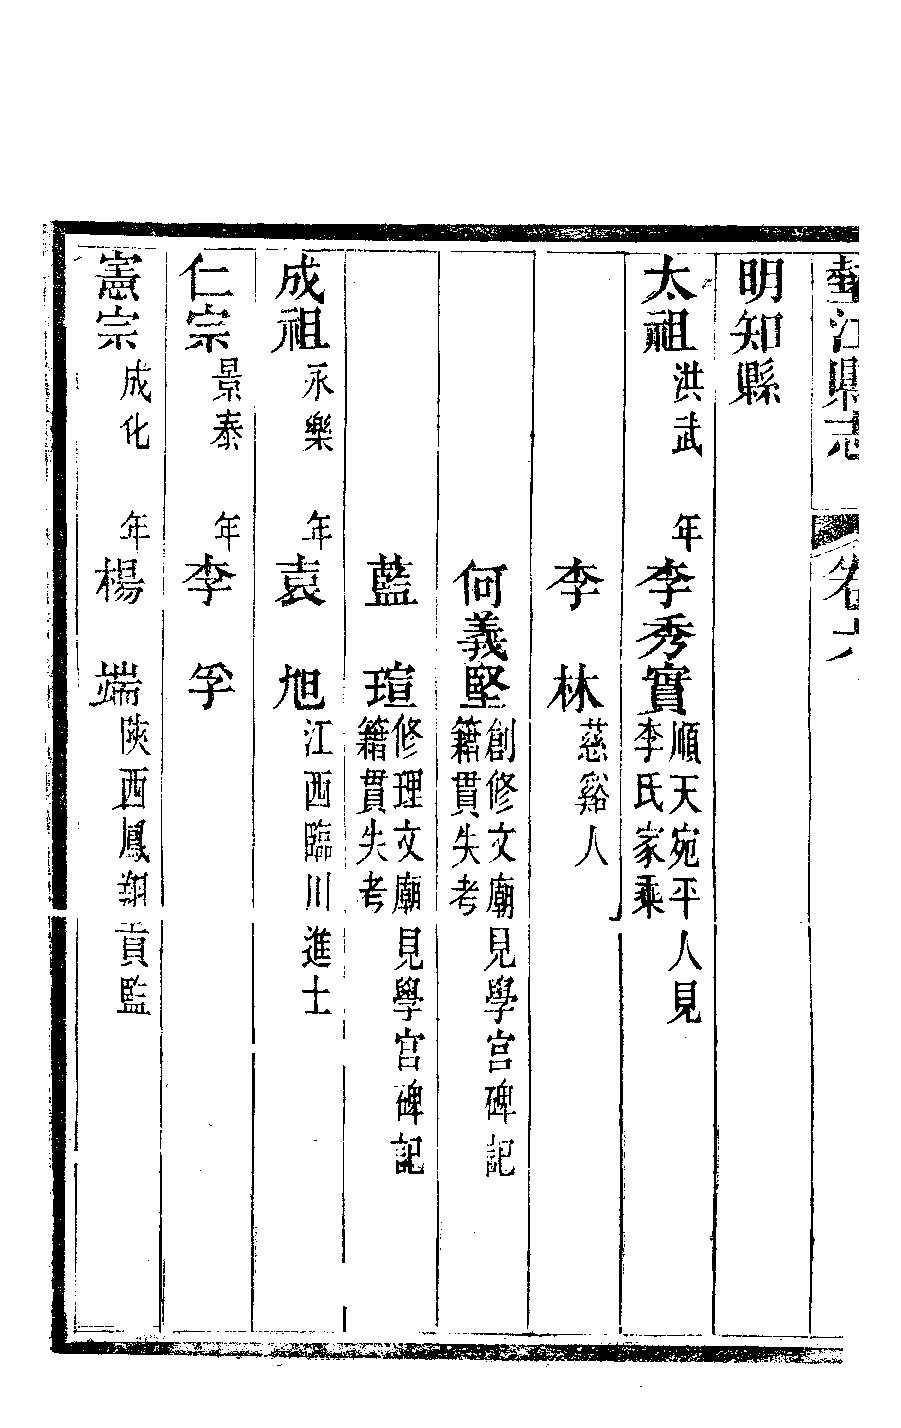 墊江縣志 卷六
明知縣
太祖洪武 年李秀實順天宛平人見李氏家乘
李 林慈谿人
何義堅創修文廟見學宮碑記籍貫失考
藍 瑄修理文廟見學宮碑記籍貫失考
成祖永樂 年袁 旭江西臨川進士
仁宗景泰 年李 孚
憲宗成化 年楊 端陝西鳳翔貢監